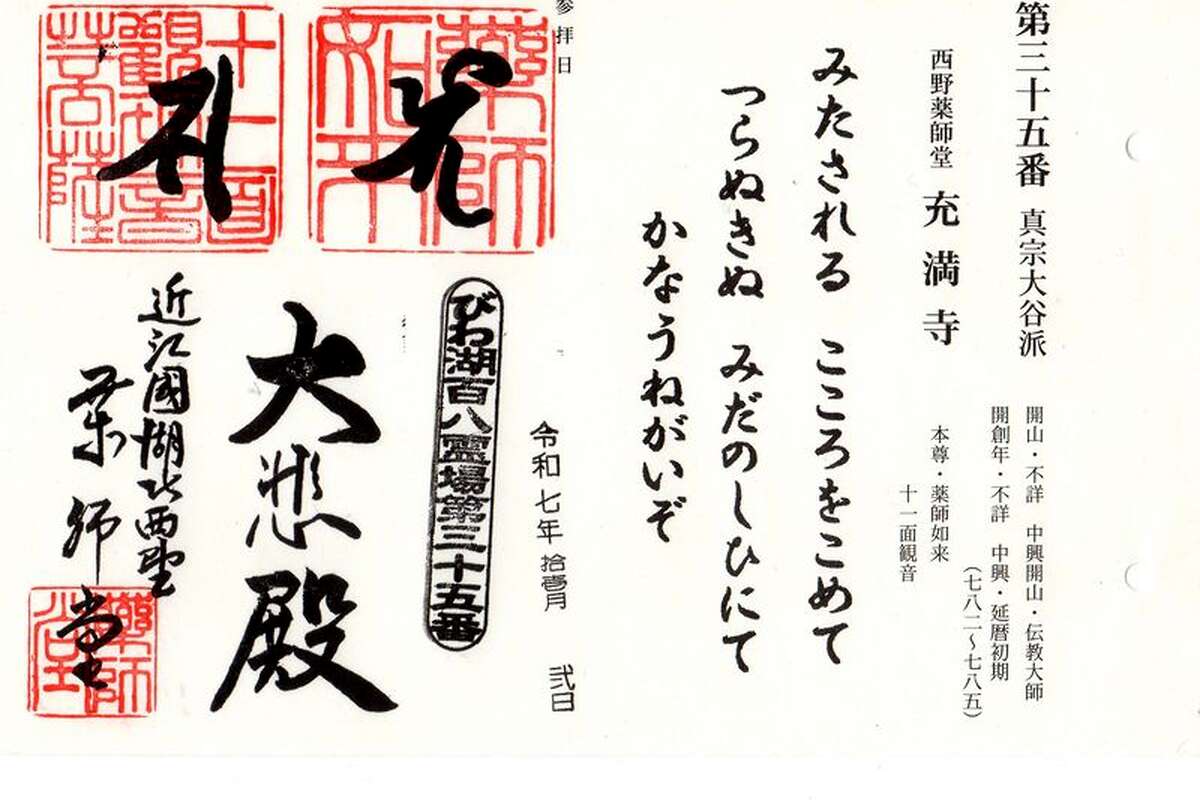 第三十五番 真宗大谷派
開山・不詳 中興開山・伝教大師
開創年・不詳 中興・延暦初期
(七八二〜七八五)
西野薬師堂 充満寺
本尊・薬師如来
十一面観音
みたされる こころをこめて
つらぬきぬ みだのしひにて
かなうねがいぞ
参拝日
令和七年 拾壱月 弐日
薬師
如来
十一面
観世音
菩薩
びわ湖百八霊場第三十五番
大悲殿
近江國湖北西野
薬师堂
薬師